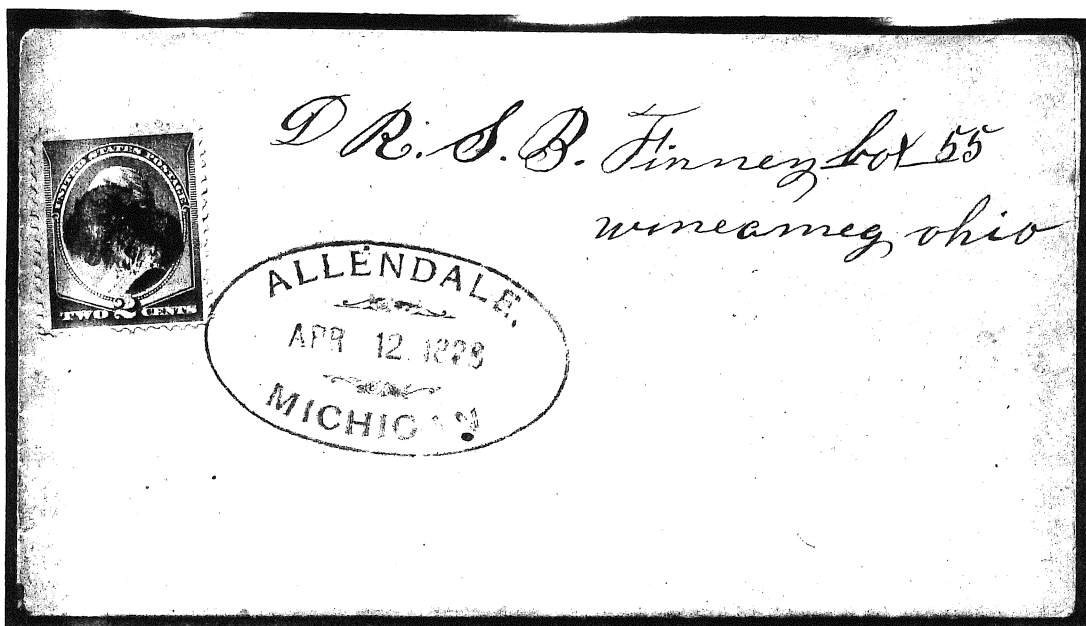 DR. S. B. Finney box 55
wineameg ohio
UNITED STATES POSTAGE
TWO 2 CENTS
ALLENDALE,
APR 12
MICHIGAN